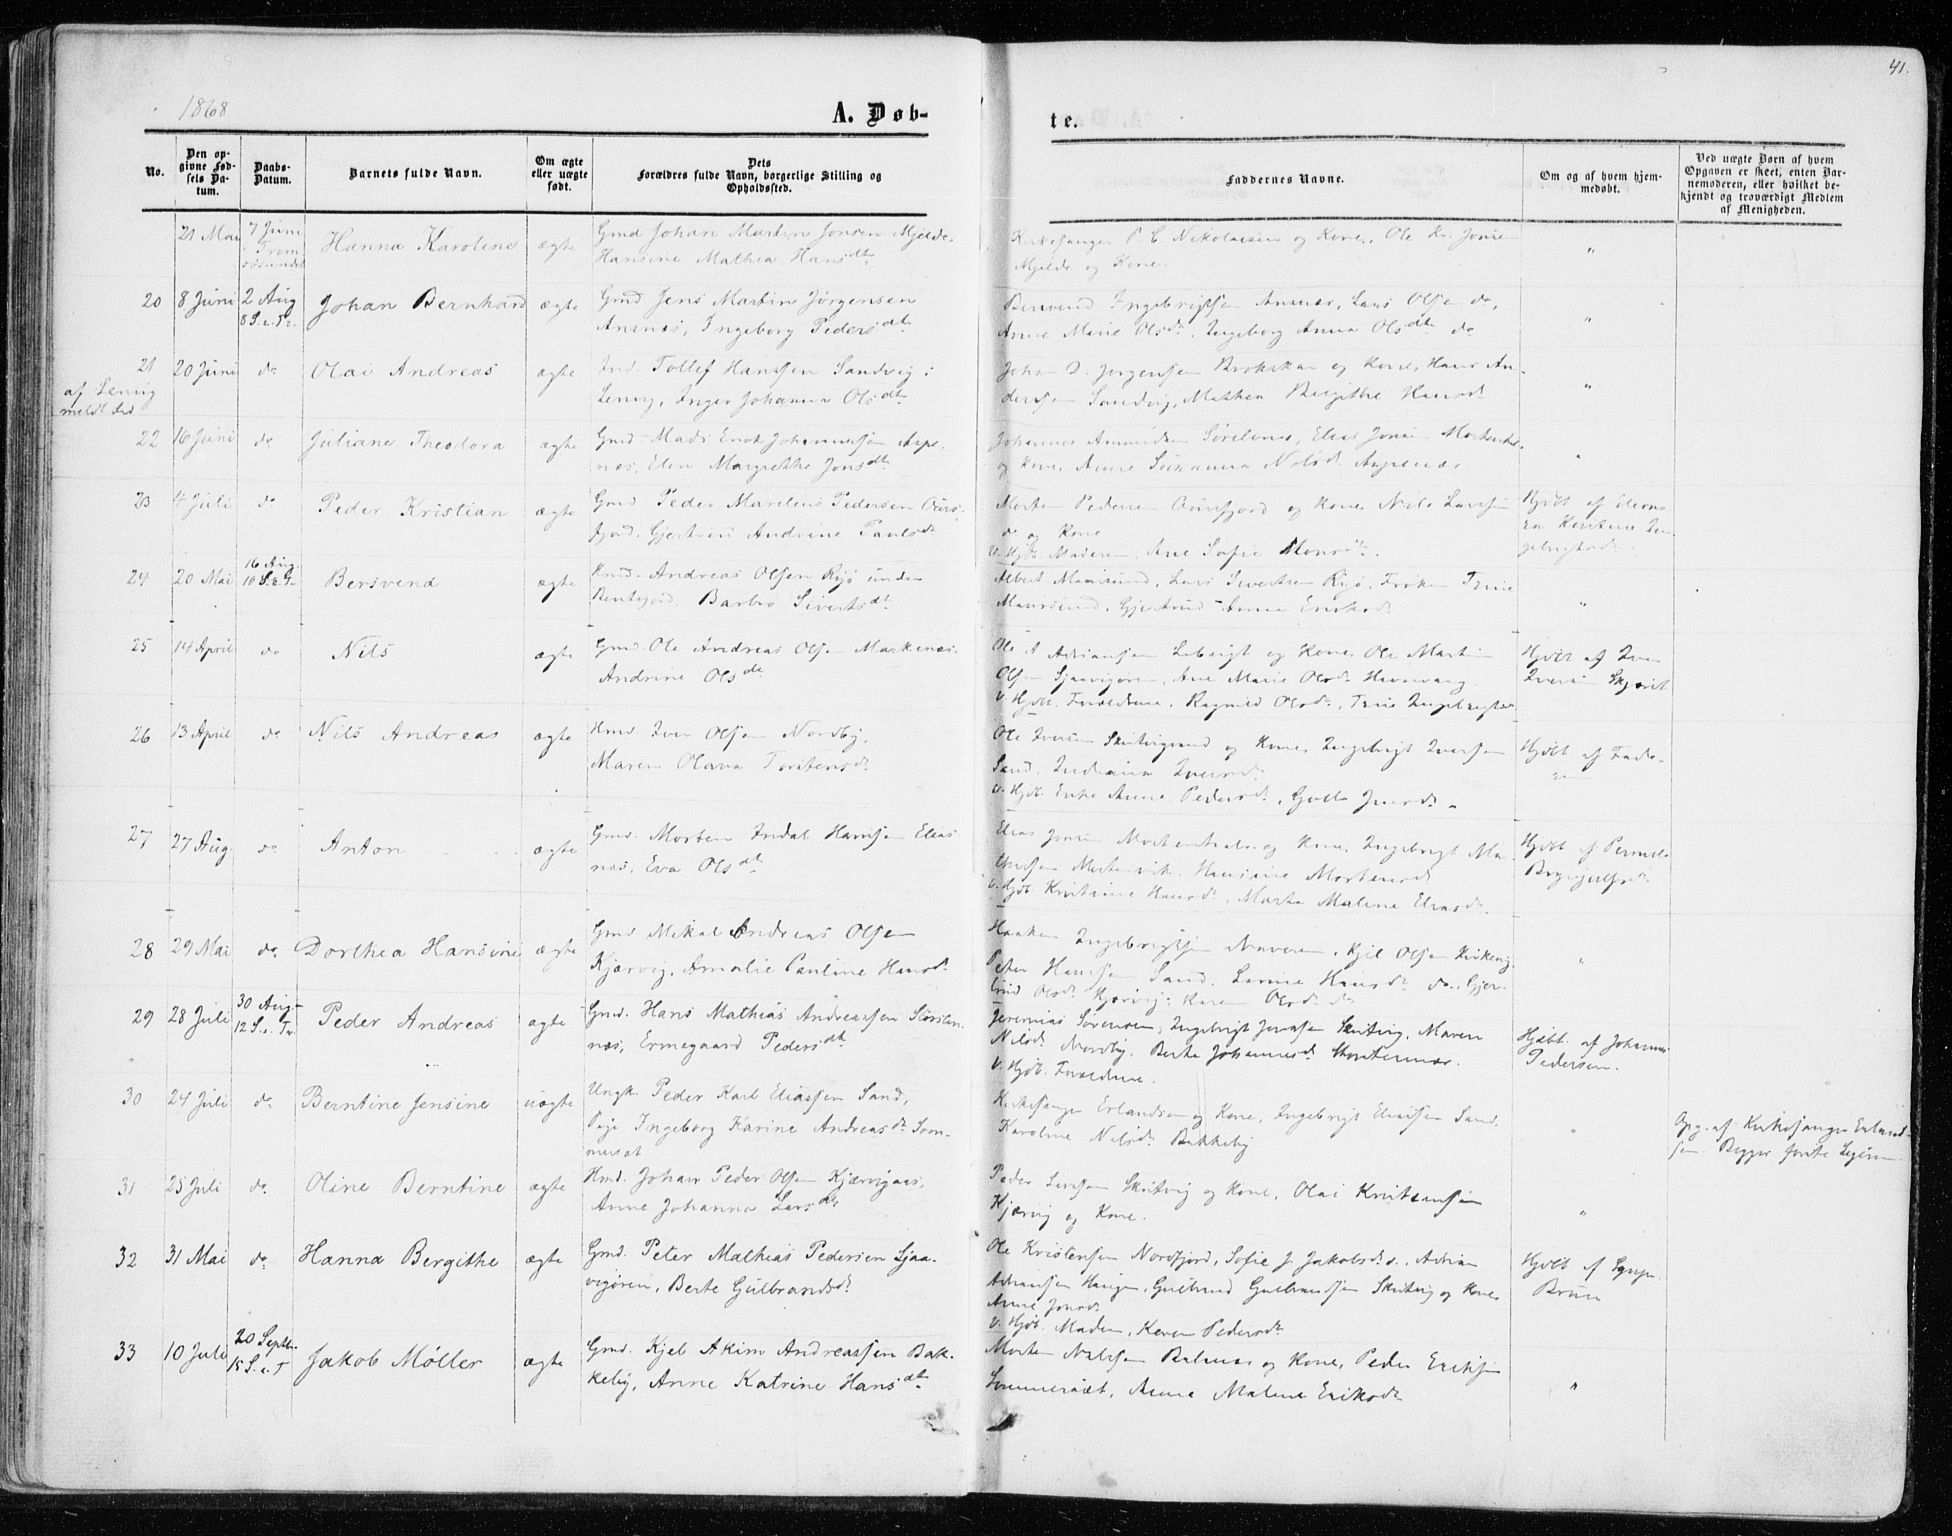 1868
A. Døb-
te.
41.
No.
Den op-
givne Fød-
sels Da-
tum.
Daabs-
Datum.
Barnets fulde Navn.
Om ægte
eller uægte
født.
Dets
Forældres fulde Navn, borgerlige Stilling og
Opholdssted.
Faddernes Navne.
Om og af hvem hjem-
medøbt.
Ved uægte Børn af hvem
Opgaven er skeet, enten Bar-
nemoderen, eller hvilket be-
kjendt og troværdigt Medlem
af Menigheden.
21 Mai
7 Juni
i Trom
søsundet
Hanna Karoline
ægte
Gmd Johan Martin Jonsen Mjelde,
Hansine Mathea Hansdtr
Kirkesanger P. C. Nikolaisen og Kone, Ole Kr. Jonsen
Mjelde og Kone.
"
20
8 Juni
2 Aug
8 S. e. Tr.
Johan Bernhard
ægte
Gmd Jens Martin Jørgensen
Ansnæs, Ingeborg Pedersdtr
Bersvend Ingebrigtsen Ansnæs, Lars Olsen do,
Anne Marie Olsdr, Ingeborg Anna Olsdtr do
"
21
af Lenvig
meldt Snd
20 Juni
do
Olai Andreas
ægte
Ind. Tollef Hanssen Sandvig i
Lenvig, Inger Johanna Olsdtr
Johan D. Jørgensen og Kone, Hans An-
derssen Sandvig, Mathea Birgitte Hansdr
"
22
16 Juni
do
Juliane Theodora
ægte
Gmd. Mads Enok Johannessen Aspe-
næs, Elen Margrethe Jonsdtr
Johannes Amundsen Sørelnes, Elias Jonsen
og Kone, Anne Susanna Nilsdr Aspenæs
"
23
4 Juli
do
Peder Kristian
ægte
Gmd Peder Marelius Pedersen Aurs-
fjord. Gjertrud Andrine Paulsdr
Morten Pedersen Aursfjord og Kone, Nils Larssen
do og Kone
v. Hjdb. Moderen, Ane Sofie Monsdr.
Hjdbt af
Kirstine In-
gebrigtsdr.
24
20 Mai
16 Aug.
10 S. e. Tr
Bersvend
ægte
Hmd. Andreas Olsen Rijø under
Bentsjord. Barbro Sivertsdtr
Albert Maursund, Lars Sivertsen Rijø, Frøken Trine
Maursund, Gjertrud Anna Eriksdr
"
25
14 April
do
Nils
ægte
Gmd. Ole Andreas Olsen Markenæs,
Andrine Olsdtr
Ole A Adriansen og Kone, Ole Martin
Olsen Sjaavigøren, Ane Marie Olsdr
v. Hjdb. Forældrene, Ragnild Olsdr, Trine Ingebrigtsdr
Hjdbt af Iver
Iversen
26
13 April
do
Nils Andreas
ægte
Hmd. Iver Olsen Nordby,
Maren Olava Torstensdr
Ole Iversen og Kone, Ingebrigt Iversen
Sand, Indianna Iversdr
v. Hjdb. Enke Anne Pedersdr,
Hjdbt af Fade-
ren
27
27 Aug
do
Anton
ægte
Gmd. Morten Indal Hanssen Elias
næs, Eva Olsdtr
Elias Jonsen og Kone, Ingebrigt Ma-
thissen Mortenvik, Hansine Mortensdr
v. Hjdb. Kristine Hansdr, Marta Malene Eliasdr.
Hjdbt af Pernele
Brynjulfsdr.
28
29 Mai
do
Dorthea Hansine
ægte
Gmd Mikal Andreas Olsen
Kjærvig, Amalie Pauline Hansdr
Haaken Ingebrigtsen Naveren, Kjel Olsen
Peter Hanssen Sand, Lorine Hansdr do., Gjer-
trud Olsdr Kjærvig, Karen Olsdr do
"
29
28 Juli
30 Aug.
12 S. e. Tr.
Peder Andreas
ægte
Gmd. Hans Mathias Andreassen Storsten
næs, Ermegaard Pedersdtr
Jeremias Sørensen, Ingebrigt Jonssen Skutvig, Maren
Nilsdr Nordby, Berte Johannesdr Storstennæs.
v. Hjdb. Forældrene.
Hjdbt. af Johannes
Pedersen.
30
24 Juli
do
Berntine Jensine
uægte
Ungk. Peder Karl Eliassen Sand,
Pige Ingeborg Karine Andreasdr Som-
mersæt
Kirkesanger Erlandsen og Kone, Ingebrigt Eliassen Sand,
Karoline Nilsdr Bakkeby
"
Opg. af Kirkesanger Erland-
sen. Begges første Leierm.
31
25 Juli
do
Oline Berntine
ægte
Hmd. Johan Peder Olsen Kjærvigaas,
Anne Johanna Larsdtr
Peder Larssen Skutvig og Kone, Olai Kristiansen
Kjærvig og Kone.
"
32
31 Mai
do
Hanna Bergithe
ægte
Gmd. Peter Mathias Pedersen Sjaa-
vigøren, Berte Gulbrandsdr
Ole Kristensen Nordfjord, Sofie J. Jakobsdr s., Adrian
Adriansen Haugen, Gulbrand Gulbrandsen Skutvig og Kone
Anne Jonsdr
v. Hjdb. Moderen, Karen Pedersdtr
Hjdbt af
Bruun
33
10 Juli
20 Septbr.
15 S. e. T
Jakob Møller
ægte
Gmd. Kjel Akim Andreassen Bak-
keby, Anne Katrine Hansdtr
Morten Nilssen Balsnes og Kone, Peder Erikssen
Sommersæt, Anne Malene Eriksdtr
"